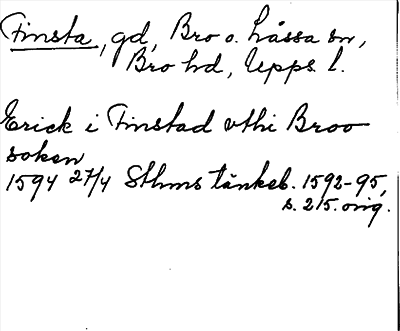 Finsta, gd, Bro o. Låssa sn,
Bro hd, Upps. l.
Erick i Finstad vthi Broo
soken
1594 27/4 Sthms tänkeb. 1592-95,
s. 215. orig.